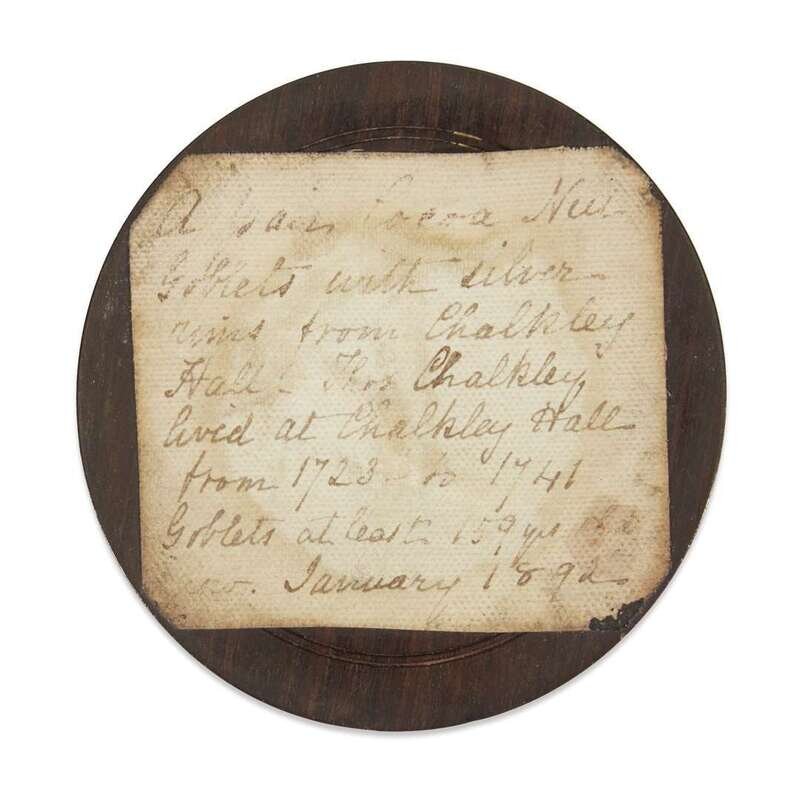 A pair Cocoa Nut
Goblets with silver
rims from Chalkley
Hall - Thos Chalkley
livid at Chalkley Hall
from 1723 - to 1741
Goblets at least 159 yrs
January 1892